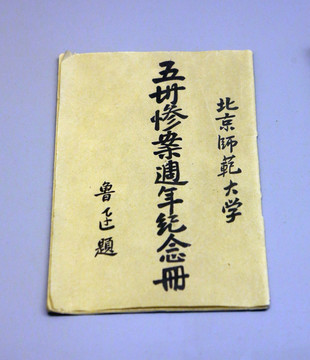 北京師範大学
五卅慘案週年紀念冊
魯迅題